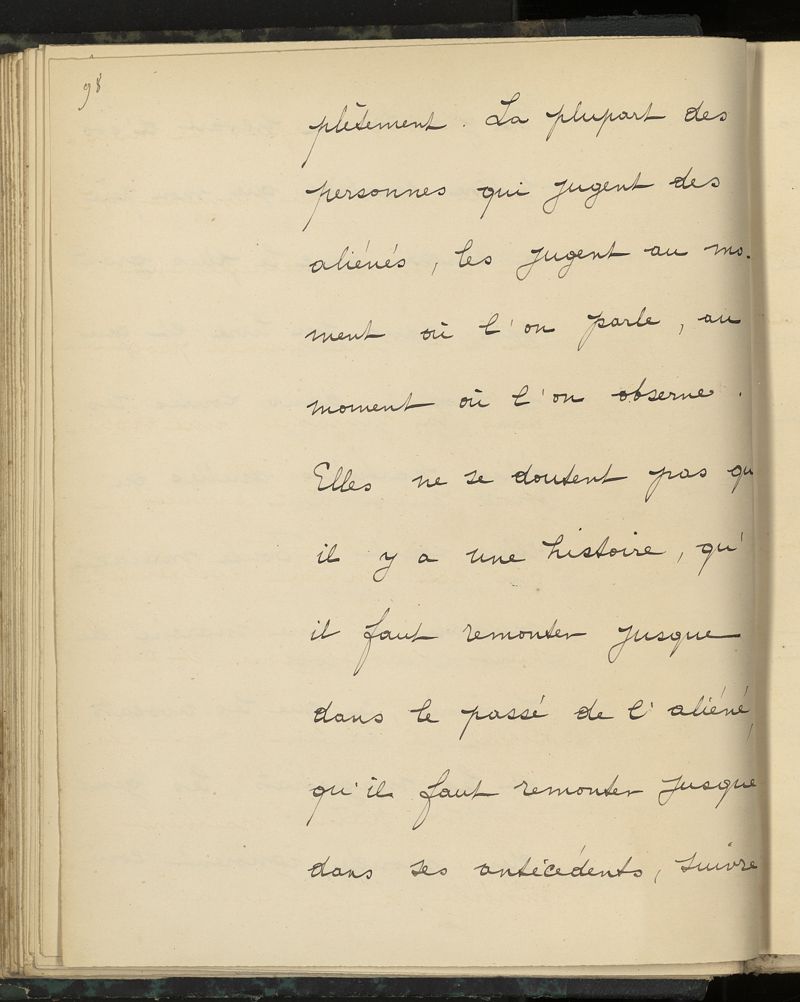 98
plètement. La plupart des
personnes qui jugent des
aliénés, les jugent au mo-
ment où l'on parle, au
moment où l'on observe.
Elles ne se doutent pas qu
il y a une histoire, qu'
il faut remonter jusque
dans le passé de l'aliéné,
qu'il faut remonter jusque
dans ses antécédents, suivre